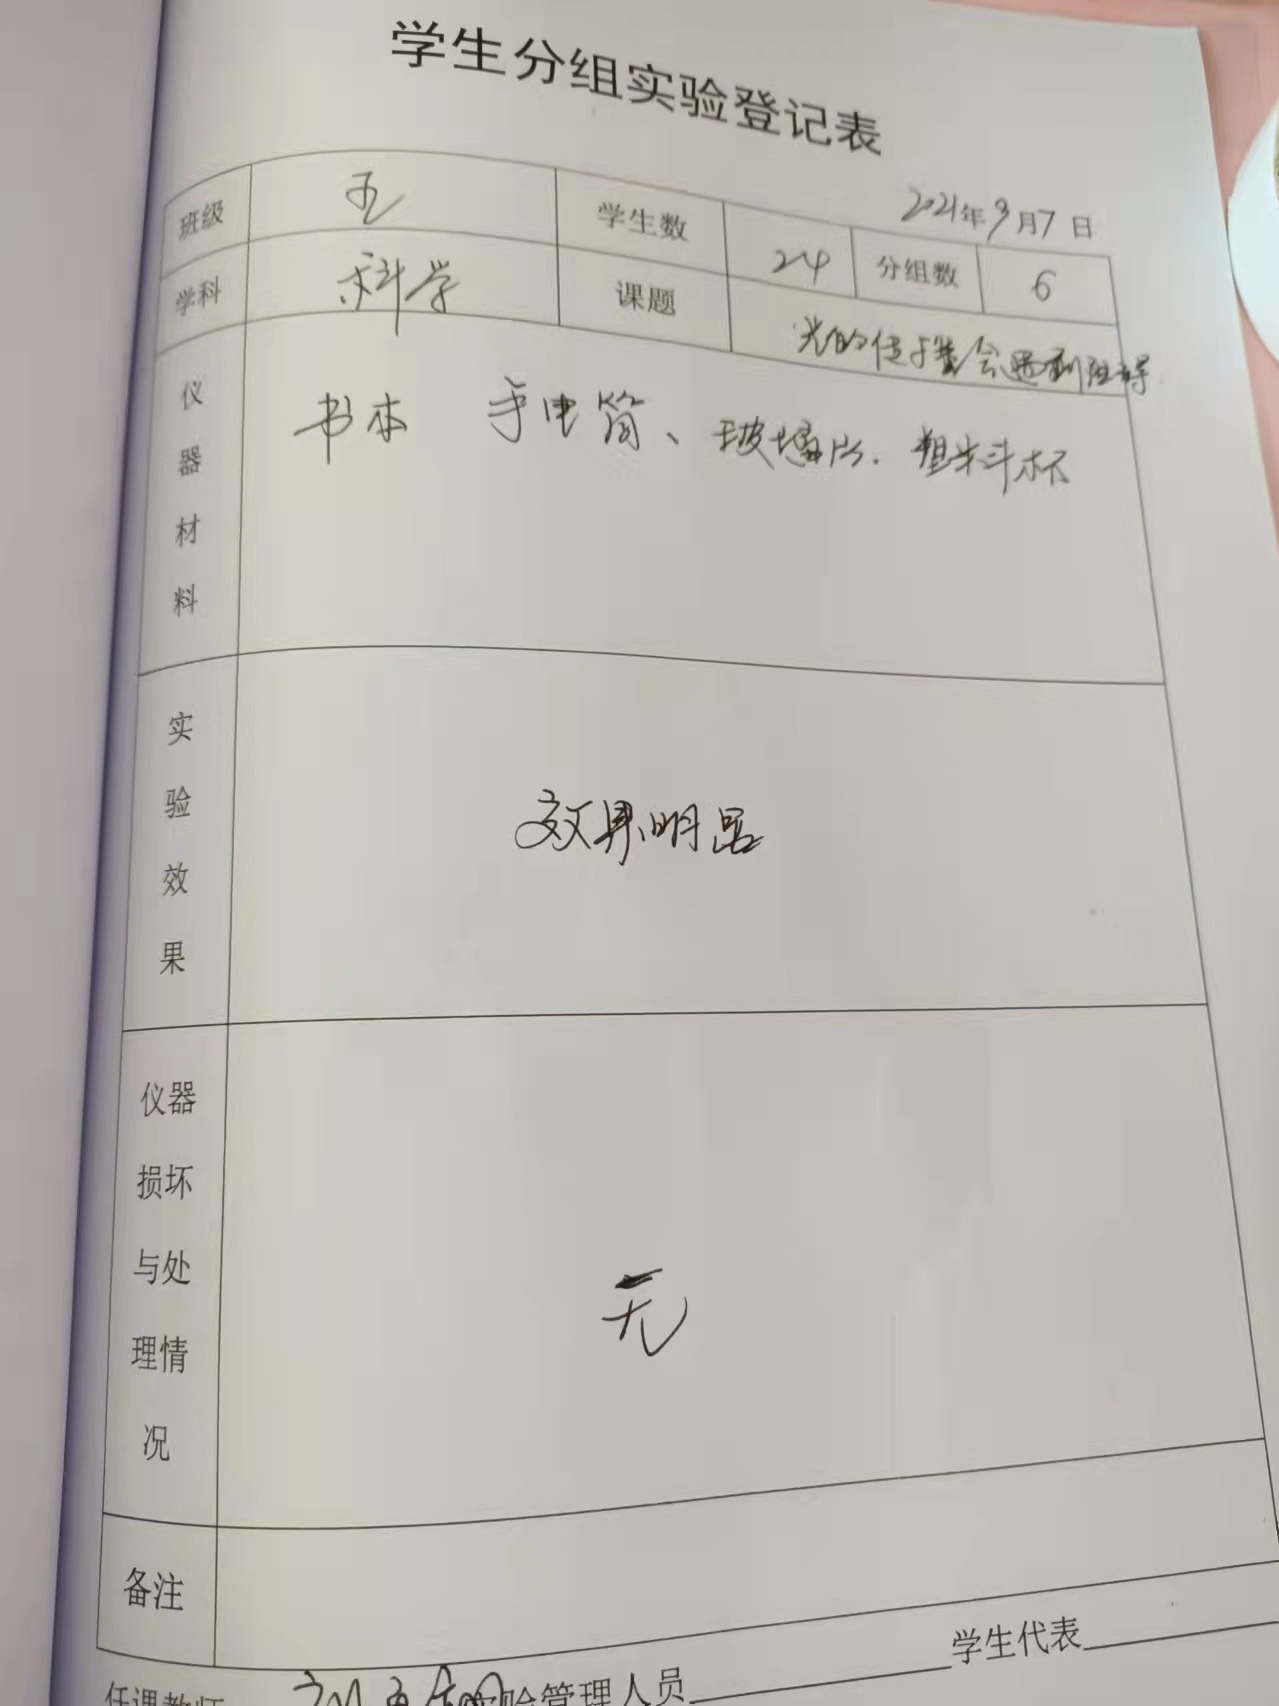 学生分组实验登记表
2021年9月7日
班级 五 学生数 24 分组数 6
学科 科学 课题 光的传播会遇到阻碍
仪器材料 书本 手电筒、玻璃片、塑料杯
实验效果 效果明显
仪器损坏与处理情况 无
备注
任课教师 实验管理人员 学生代表